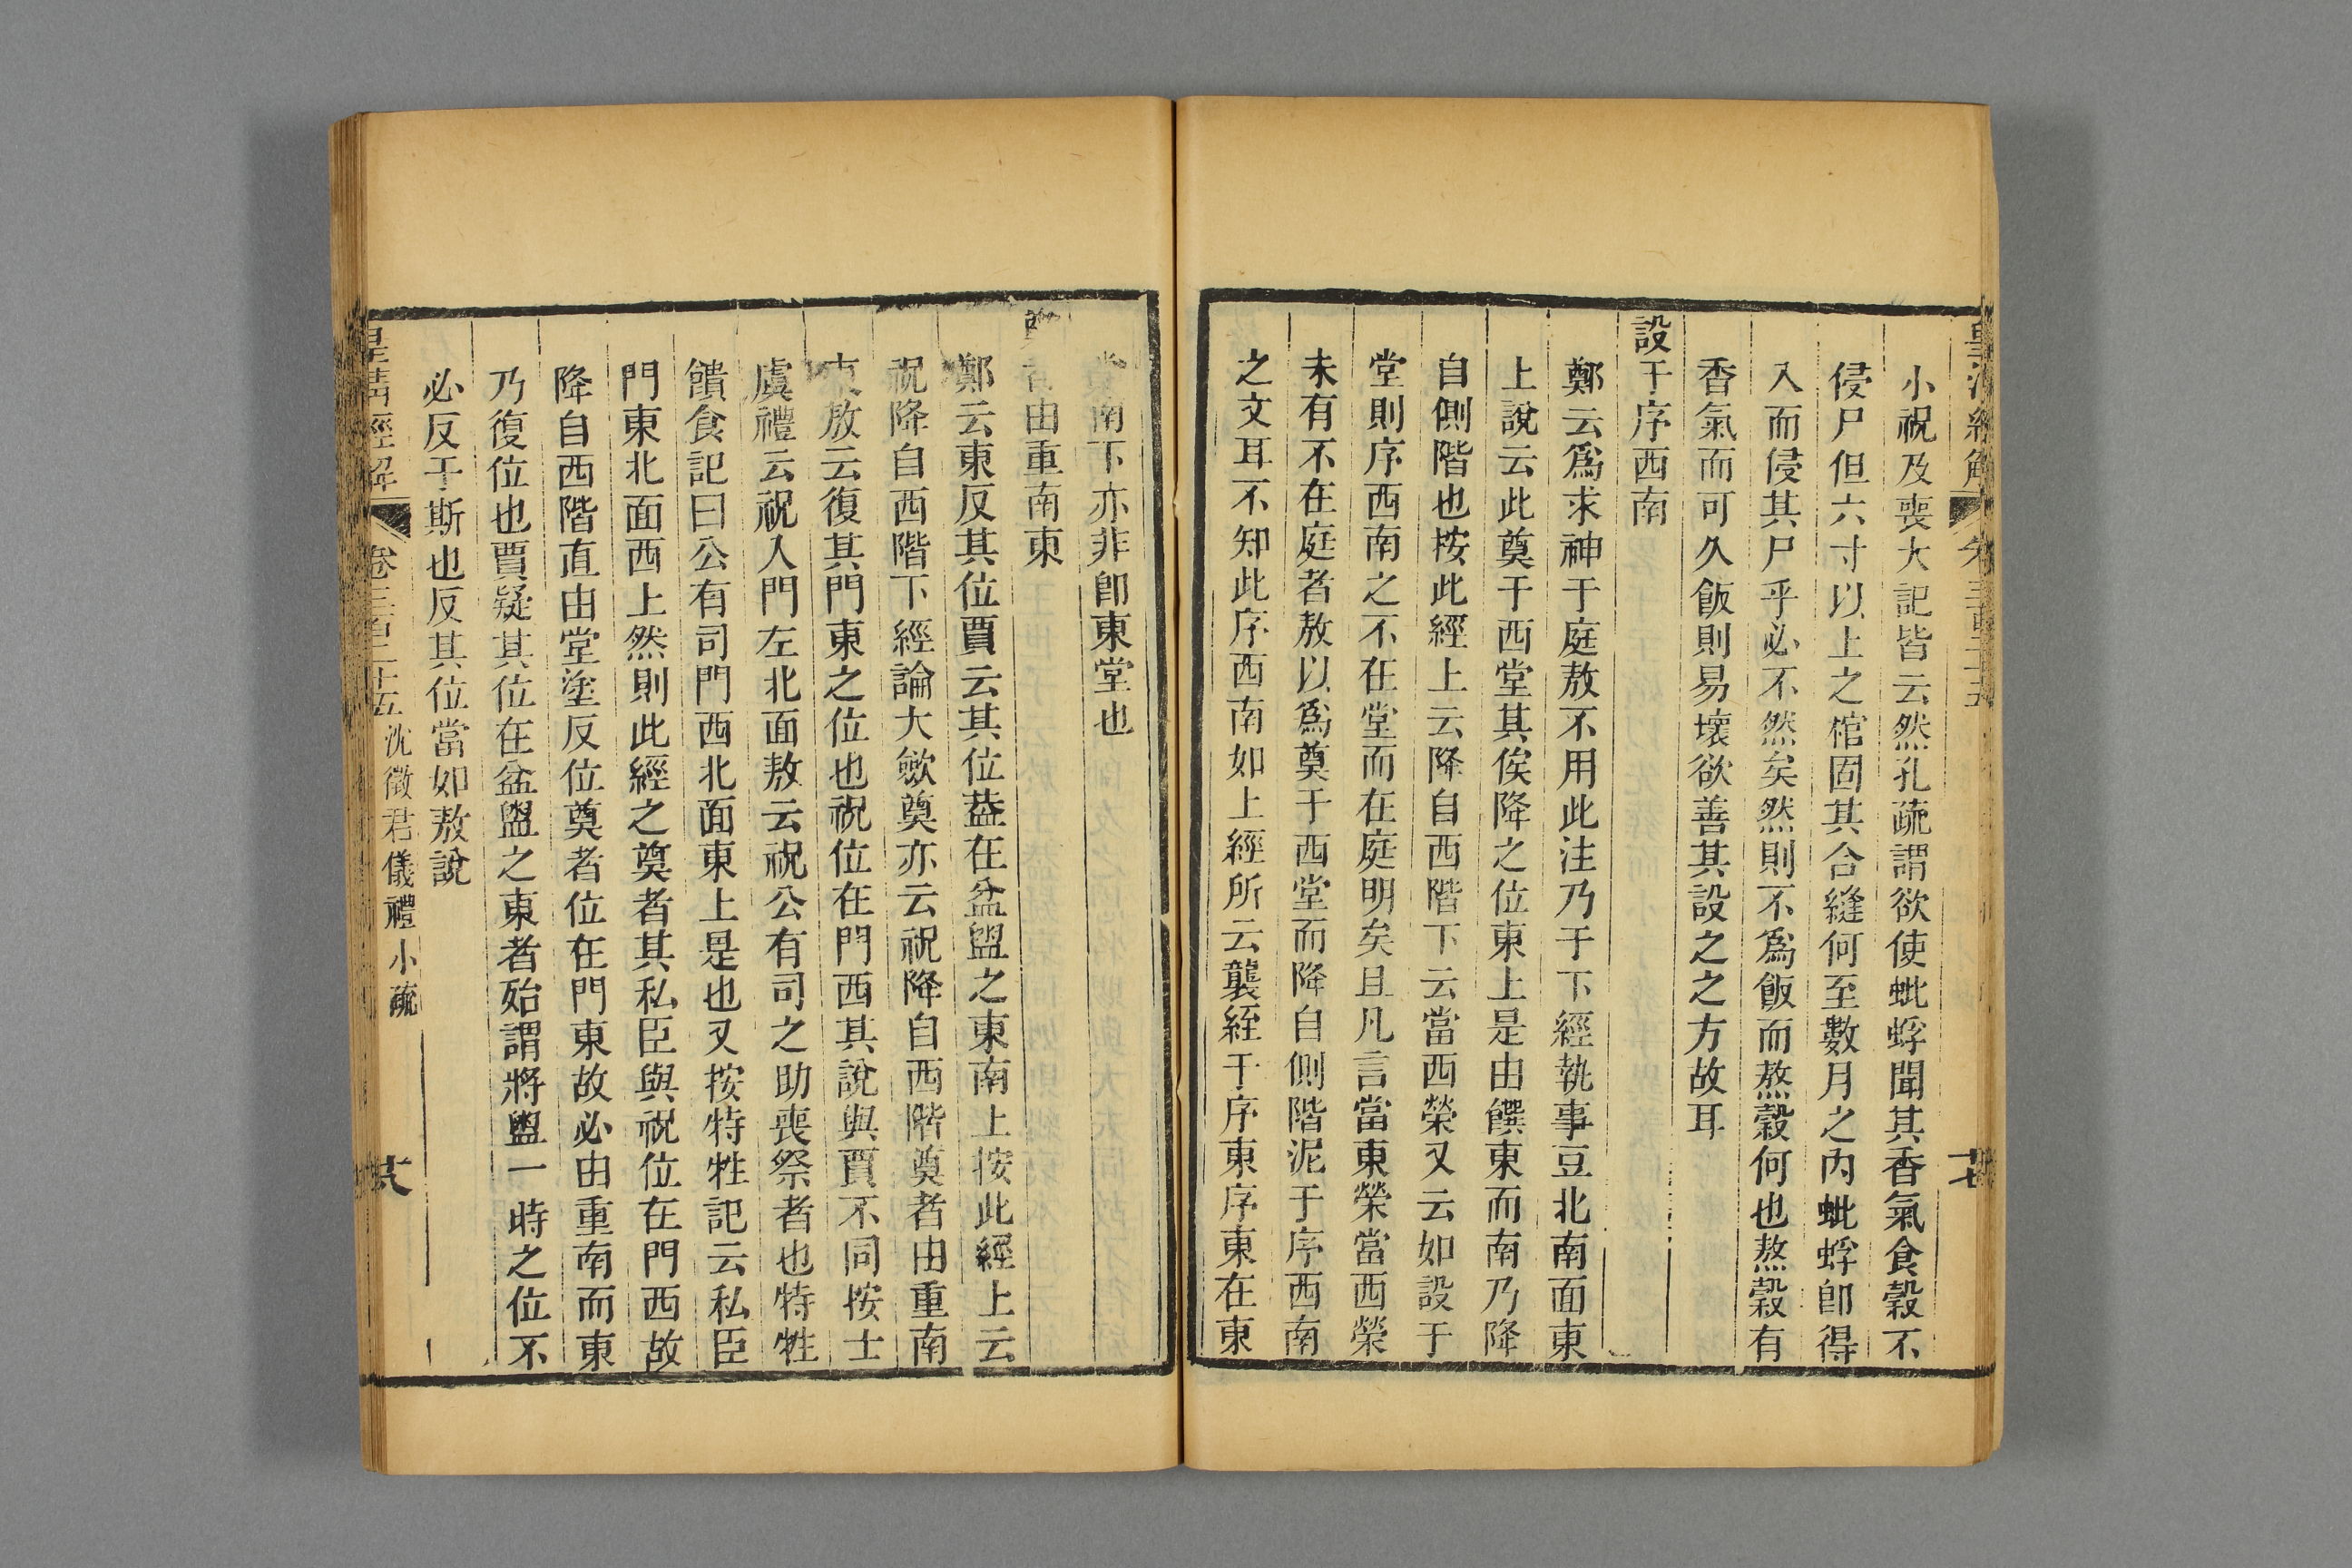 皇清經解 卷三百二十五 廿七
小祝及喪大記皆云然孔疏謂欲使蚍蜉聞其香氣食穀不
侵尸但六寸以上之棺固其合縫何至數月之內蚍蜉卽得
入而侵其尸乎必不然矣然則不爲飯而熬穀何也熬穀有
香氣而可久飯則易壞欲善其設之之方故耳
設于序西南
鄭云爲求神于庭敖不用此注乃于下經執事豆北南面東
上說云此奠于西堂其俟降之位東上是由饌東而南乃降
自側階也按此經上云降自西階下云當西榮又云如設于
堂則序西南之不在堂而在庭明矣且凡言當東榮當西榮
未有不在庭者敖以爲奠于西堂而降自側階泥于序西南
之文耳不知此序西南如上經所云襲絰于序東序東在東
堂南下亦非卽東堂也
奠者由重南東
鄭云東反其位賈云其位葢在盆盥之東南上按此經上云
祝降自西階下經論大歛奠亦云祝降自西階奠者由重南
東敖云復其門東之位也祝位在門西其說與賈不同按士
虞禮云祝入門左北面敖云祝公有司之助喪祭者也特牲
饋食記曰公有司門西北面東上是也又按特牲記云私臣
門東北面西上然則此經之奠者其私臣與祝位在門西故
降自西階直由堂塗反位奠者位在門東故必由重南而東
乃復位也賈疑其位在盆盥之東者殆謂將盥一時之位不
必反于斯也反其位當如敖說
皇清經解 卷三百二十五 沈徵君儀禮小疏 廿八